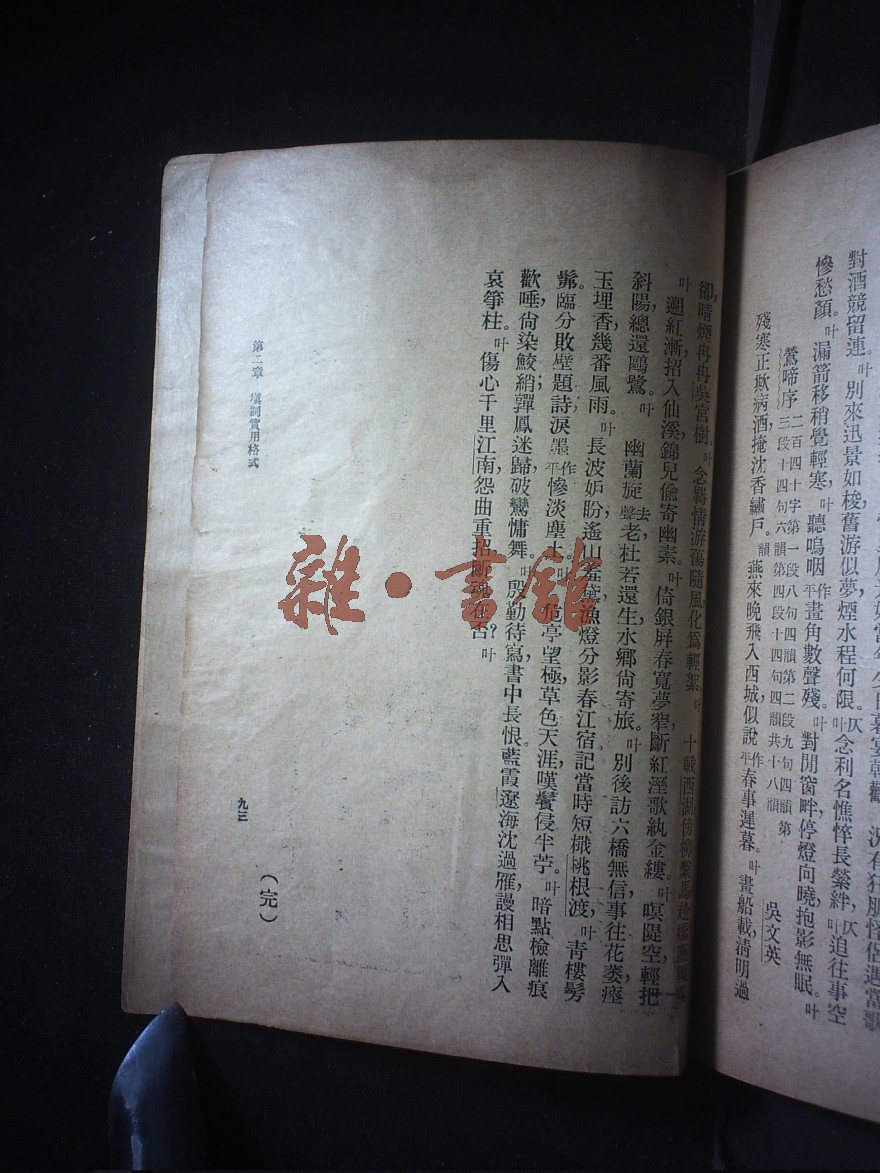 對酒競留連。叶別來迅景如梭，舊游似夢，煙水程何限。仄叶念利名憔悴長縈絆，仄叶追往事空
慘愁顏。叶漏箭移，稍覺輕寒，叶聽嗚咽作平畫角數聲殘。叶對閒窗畔，停燈向曉，抱影無眠。叶
鶯啼序 二百四十字第一段八句四韻第二段九句四韻第
三段十四句六韻第四段十四句四韻共十八韻
吳文英
殘寒正欺病酒，掩沈香繡戶。韻燕來晚，飛入西城，似說作平春事遲暮。叶畫船載，清明過
卻，晴煙冉冉吳宮樹。叶念羈情游蕩，隨風化爲輕絮。叶 十載西湖，傍柳繫馬，
叶遡紅漸招入仙溪，錦兒偷寄幽素。叶倚銀屏，春寬夢窄，斷紅溼歌紈金縷。叶暝隄空，輕把
斜陽，總還鷗鷺。叶 幽蘭旋去聲老，杜若還生，水鄉尙寄旅。叶別後訪六橋無信，事往花萎，瘞
玉埋香，幾番風雨。叶長波妒盼，遙山羞黛，漁燈分影春江宿，記當時短檝桃根渡，叶青樓髣
髴。臨分敗壁題詩，淚墨作平慘淡塵土。叶 危亭望極，草色天涯，嘆鬢侵半苧。叶暗點檢離痕
歡唾，尙染鮫綃；嚲鳳迷歸，破鸞慵舞。叶殷勤待寫，書中長恨，藍霞遼海沈過雁，謾相思彈入
哀箏柱。叶傷心千里江南，怨曲重招，斷魂在否？叶
第二章 塡詞實用格式
九三
（完）
雜·書館